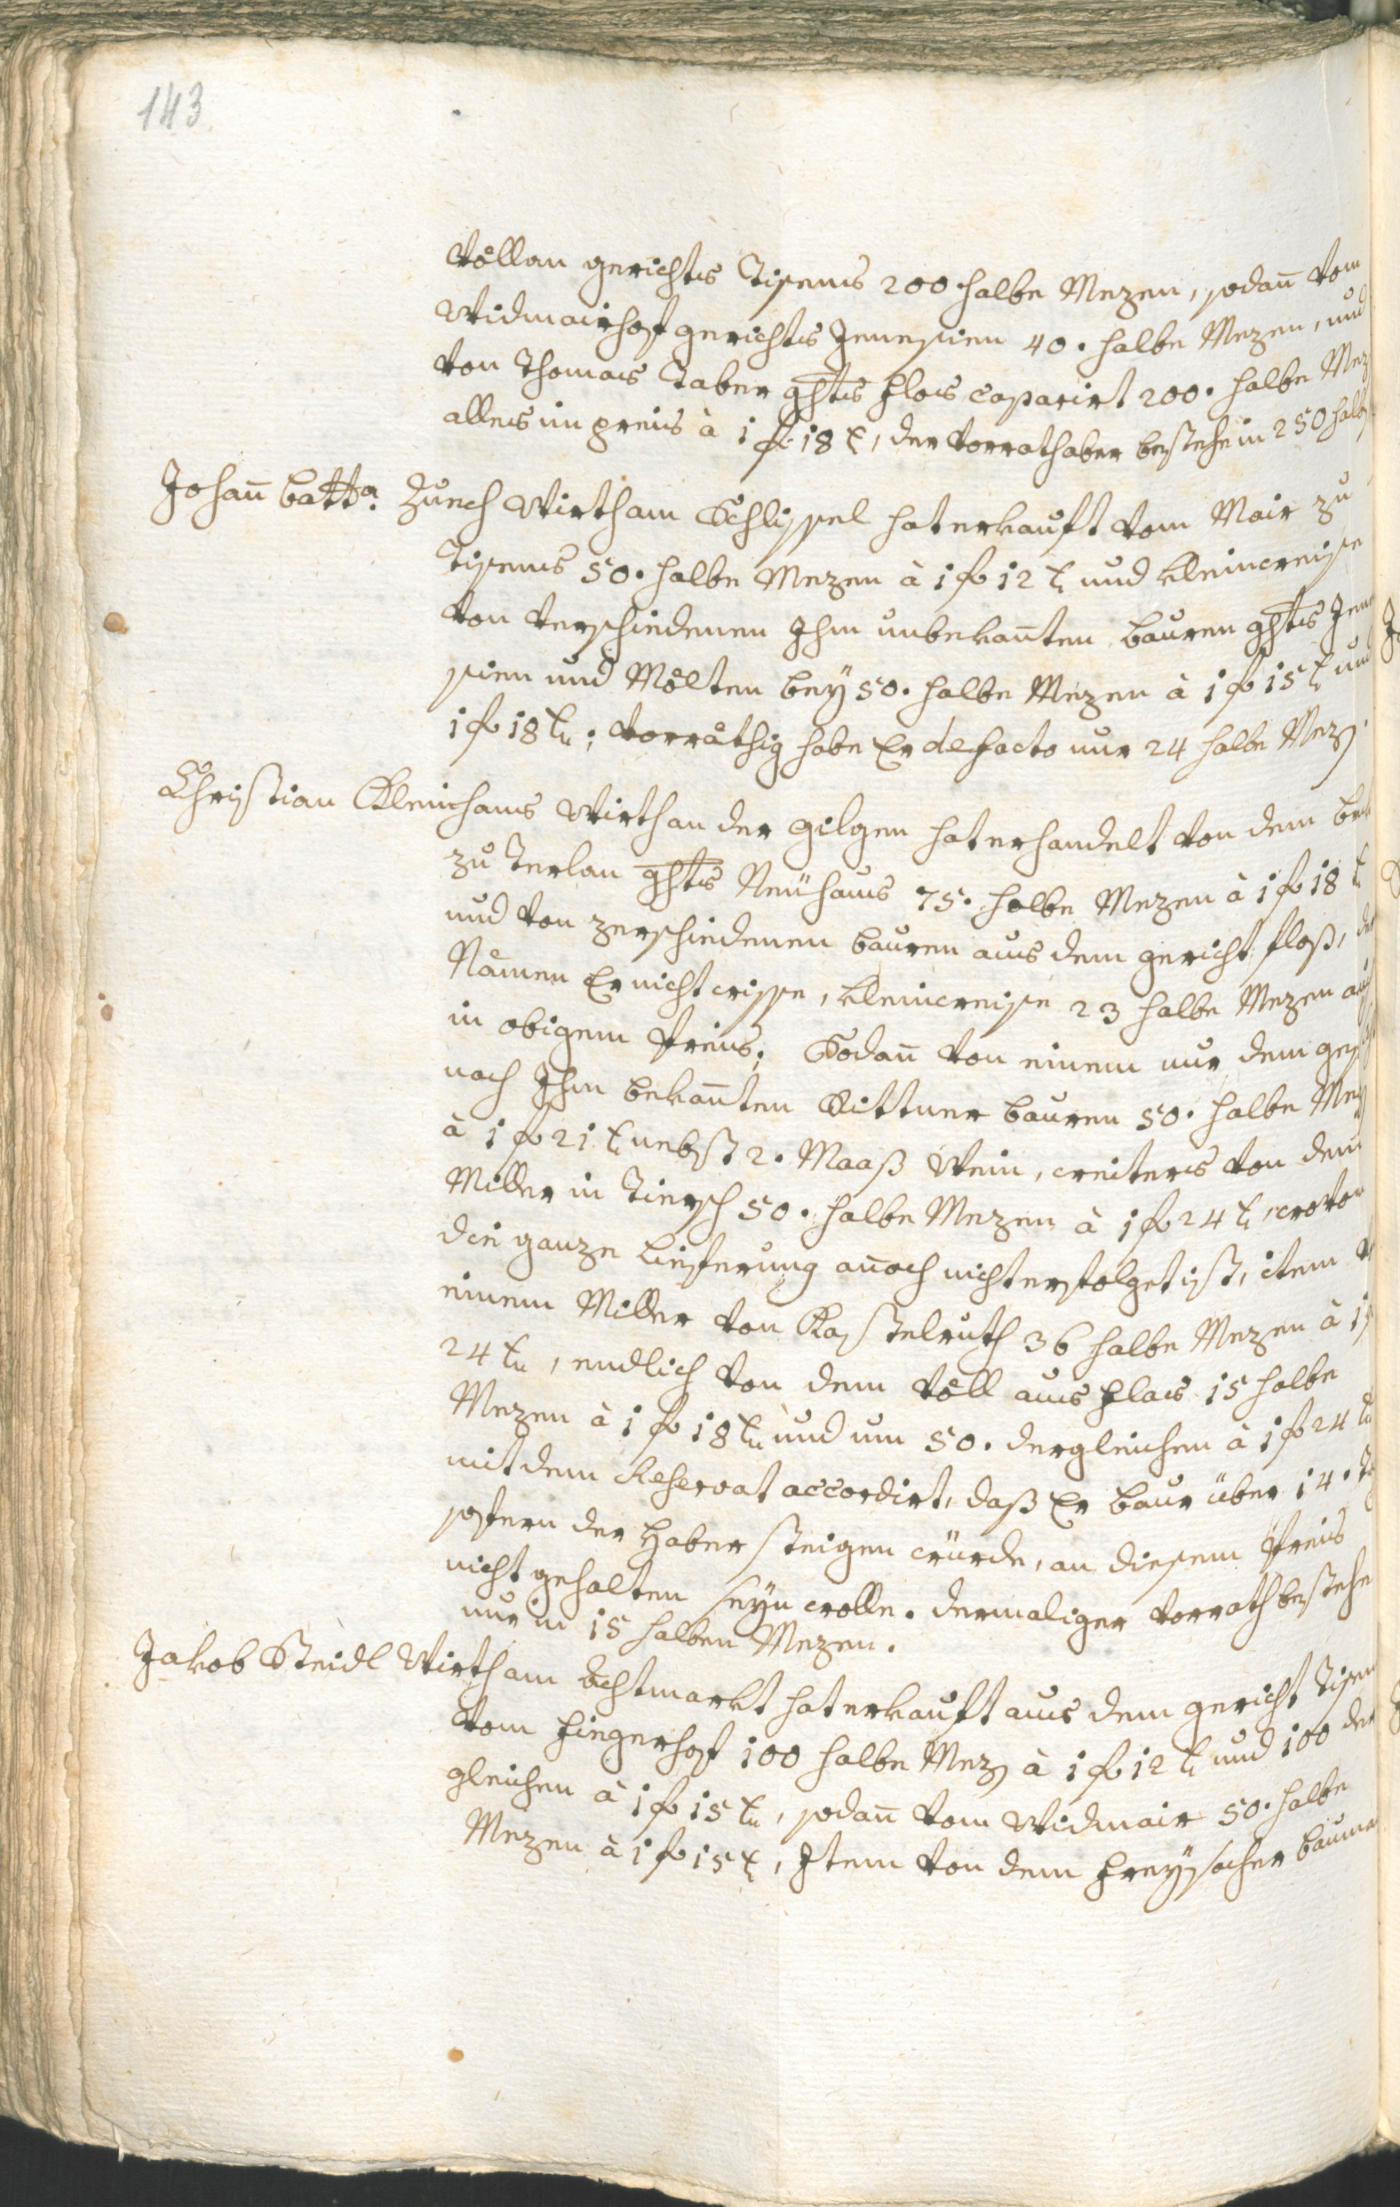 143
Völlan gerichts Tisens 200 halbe Mezen, sodañ vom
Widmairhof gerichts Jenesien 40. halbe Mezen, und
von Thomas Taber ghts Flaß caparirt 200. halbe Mez
alles in preis à 1 f 18 x, der Vorrath aber bestehe in 250 halb
Johañ Batta. Zunech Wirth am Schlissel hat erkauft vom Mair zu
Tisens 50. halbe Mezen à 1 f 12 x und kleinweise
von verschiedenen Ihm unbekañten Bauren ghts Jene
sien und Mölten bey 50. halbe Mezen à 1 f 15 x und
1 f 18 x; Vorräthig habe Er de facto nur 24 halbe Mez.
Christian Kleinhans Wirth an der Gilgen hat erhandelt von dem
zu Terlan ghts Neühaus 75. halbe Mezen à 1 f 18 x
und von zerschiedenen Bauren aus dem gericht Flaß, der
Nämen Er nicht wisse, kleinweise 23 halbe Mezen auch
in obigem Preis; Sodañ von einem nur dem ges
nach Ihm bekañten Rittner Bauren 50. halbe Mez
à 1 f 21 x nebst 2. Maaß Wein, weiters von dem
Miller in Tiersch 50. halbe Mezen à 1 f 24 x, wovon
die ganze Lieferung añoch nicht erfolget ist, item
einem Miller von Kastelruth 36 halbe Mezen à 1 f
24 x, endlich von dem Völl aus Flaß 15 halbe
Mezen à 1 f 18 x und um 50. dergleichen à 1 f 24 x
mit dem Reservat accordirt, daß Er Baur über 14. T
sofern der Haber steigen würde, an diesem Preis
nicht gehalten seyn wolle. dermaliger Vorrath bestehe
nur in 15 halben Mezen.
Jakob Steidl Wirth am Obstmarkt hat erkauft aus dem gericht Tisen
vom Fingerhof 100 halbe Mez à 1 f 12 x und 100 der
gleichen à 1 f 15 x, sodañ vom Widmair 50. halbe
Mezen à 1 f 15 x, Item von dem Freysacher Bauma